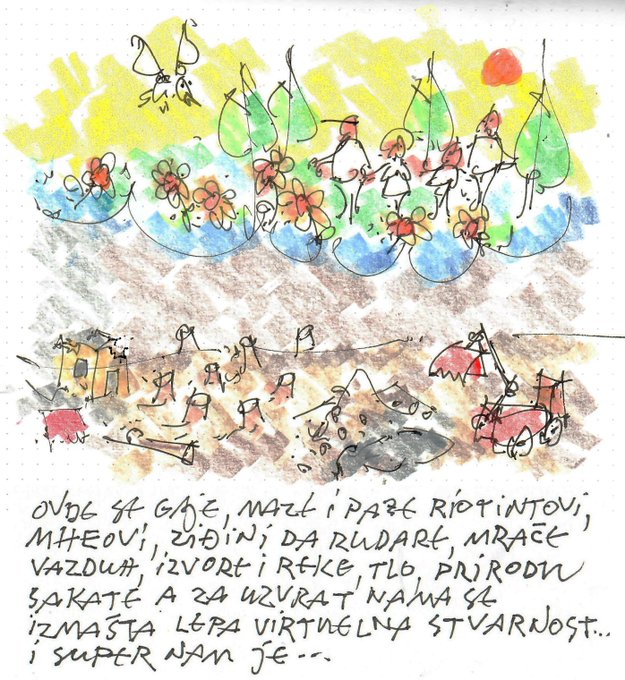 OVDE SE GAJE, MAZE I PAZE RIOTINTOVI,
MHEOVI, ZIĐINI DA RUDARE, MRAČE
VAZDUH, IZVORE I REKE, TLO, PRIRODU
SAKATE A ZA UZVRAT NAMA SE
IZMAŠTA LEPA VIRTUELNA STVARNOST...
I SUPER NAM JE...